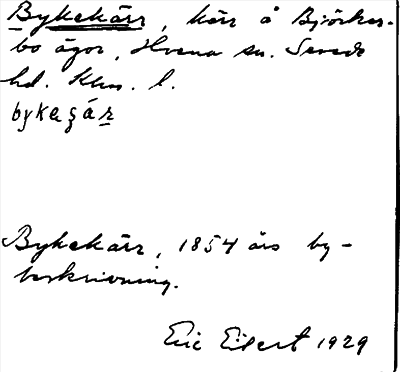 Bykekärr, kärr å Björker-
bo ägor, Hvena sn. Sevede
hd. Klm. l.
bykaʂár
Bykekärr, 1854 års by-
beskrivning.
Eric Eilert 1929